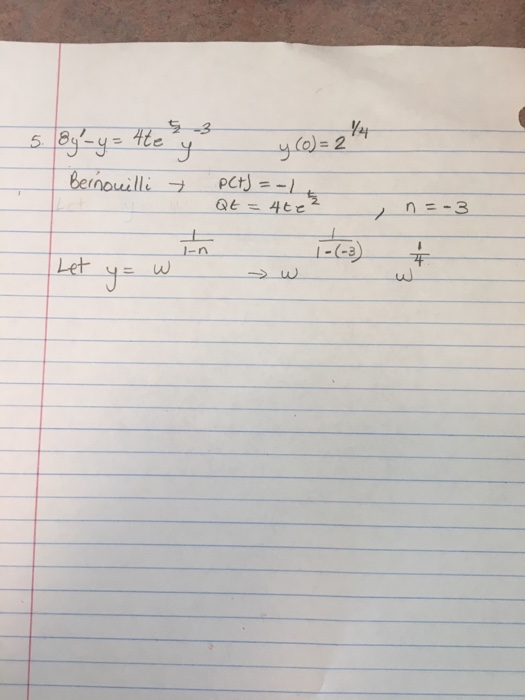 5. 8y'-y = 4te^{t/2} y^{-3} y(0) = 2^{1/4}
Bernouilli → p(t) = -1
Qt = 4te^{t/2} , n = -3
Let y = w^{1/(1-n)} → w^{1/(1-(-3))} w^{1/4}